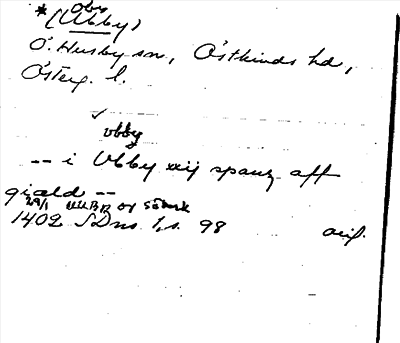 obs
*(Ubby)
Ö. Husby sn, Östkinds hd,
Österg. l.
vbby
-- i Vbby xij spanz aff
giald --
29/1
1402 SDns 1, s. 98 avif.